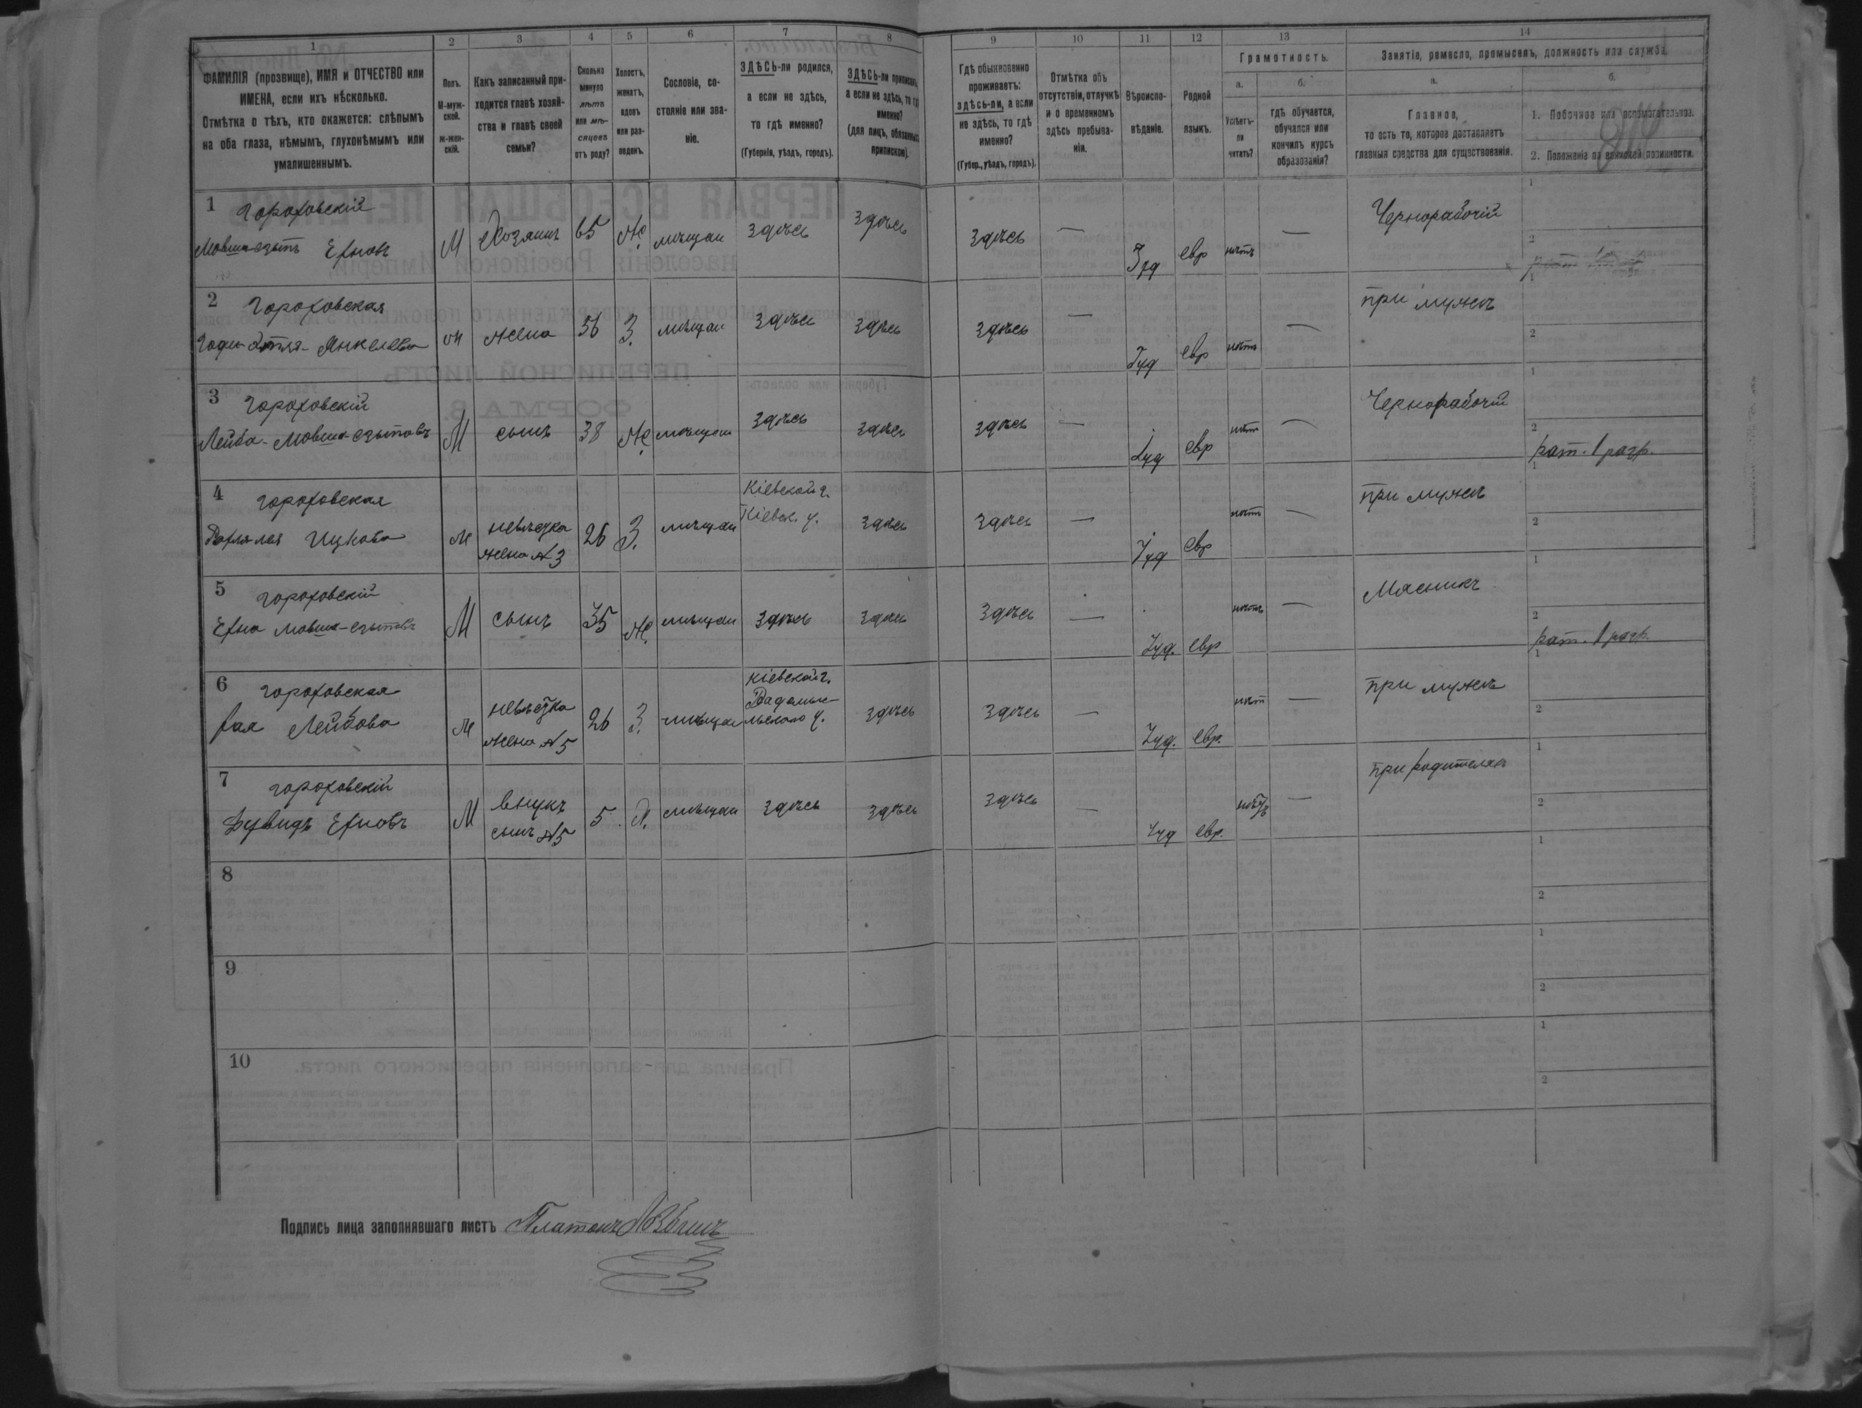 1 2 3 4 5 6 7 8 9 10 11 12 13 14
ФАМИЛІЯ (прозвище), ИМЯ и ОТЧЕСТВО или
ИМЕНА, если ихъ нѣсколько.
Отмѣтка о тѣхъ, кто окажется: слѣпымъ
на оба глаза, нѣмымъ, глухонѣмымъ или
умалишеннымъ.
Полъ.
М-муж-
ской.
ж-жен-
скій.
Какъ записанный при-
ходится главѣ хозяй-
ства и главѣ своей
семьи?
Сколько
минуло
лѣтъ
или мѣ-
сяцевъ
отъ роду?
Холостъ,
женатъ,
вдовъ
или раз-
веденъ.
Сословіе, со-
стояніе или зва-
ніе.
ЗДѢСЬ-ли родился,
а если не здѣсь,
то гдѣ именно?
(Губернія, уѣздъ, городъ).
ЗДѢСЬ-ли приписанъ,
а если не здѣсь, то гдѣ
именно?
(для лицъ, обязанныхъ
припискою).
Гдѣ обыкновенно
проживаетъ:
здѣсь-ли, а если
не здѣсь, то гдѣ
именно?
(Губер., уѣздъ, городъ).
Отмѣтка объ
отсутствіи, отлучкѣ
и о временномъ
здѣсь пребыва-
ніи.
Вѣроиспо-
вѣданіе.
Родной
языкъ.
Грамотность.
а.
Умѣетъ-
ли
читать?
б.
гдѣ обучается,
обучался или
кончилъ курсъ
образованія?
Занятія, ремесло, промыселъ, должность или служба.
а.
Главная,
то есть то, которое доставляетъ
главныя средства для существованія.
б.
1. Побочное или вспомогательное.
2. Положеніе по воинской повинности.
1 Гороховскій
Мовша Ерховъ М Хозяинъ 65 Ж. мѣщан здѣсь здѣсь здѣсь — Іуд евр нѣтъ — Чернорабочій
2 Гороховская
Янкелева жена 56 З. мѣщан здѣсь здѣсь здѣсь — Іуд евр нѣтъ — при мужѣ
3 Гороховскій
Лейба-Мовша М сынъ 38 Ж. мѣщан здѣсь здѣсь здѣсь — Іуд евр нѣтъ — Чернорабочій
рат. 1 разр.
4 Гороховская
Ицкова ж невѣстка
жена №3 26 З. мѣщан Кіевской г.
Кіевск. у. здѣсь здѣсь — Іуд евр нѣтъ — при мужѣ
5 Гороховскій
М сынъ 35 Ж. мѣщан здѣсь здѣсь здѣсь — Іуд. евр нѣтъ — Мясникъ
рат. 1 разр.
6 Гороховская
Рая Лейбова ж невѣстка
жена №5 26 З. мѣщан Кіевской г.
Радомы-
сльскаго у. здѣсь здѣсь — Іуд. евр. нѣтъ — при мужѣ
7 Гороховскій
Дувидъ М внукъ
сынъ №5 5 Х. мѣщан здѣсь здѣсь здѣсь — Іуд евр. — при родителяхъ
8
9
10
Подпись лица заполнявшаго листъ Платонъ